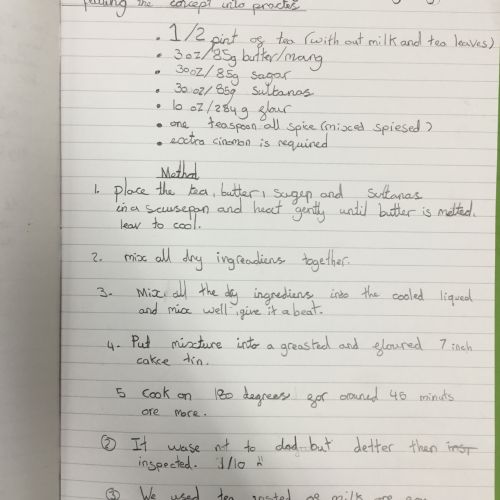 putting the concept into proctes
• 1/2 pint of tea (with out milk and tea leaves)
• 3oz/85g butter/marg
• 3oz/85g sagar
• 3oz/85g sultanas
• 10 oz/284g flour
• one teaspoon all spice (mixed spiesed)
• exctra cinamon is required
Method
1. place the tea, butter, suger and sultanas
in a scusepan and heat gently until butter is melted.
leav to cool.
2. mix all dry ingreadiens together.
3. Mix all the dry ingrediens into the cooled liqued
and mix well, give it a beat.
4. Put mixture into a greasted and floured 7 inch
cakce tin.
5 Cook on 180 degrees for oround 45 minuts
ore more.
② It wase nt to dad but detter then
inspected. 1/10
③ We used tea insted of milk